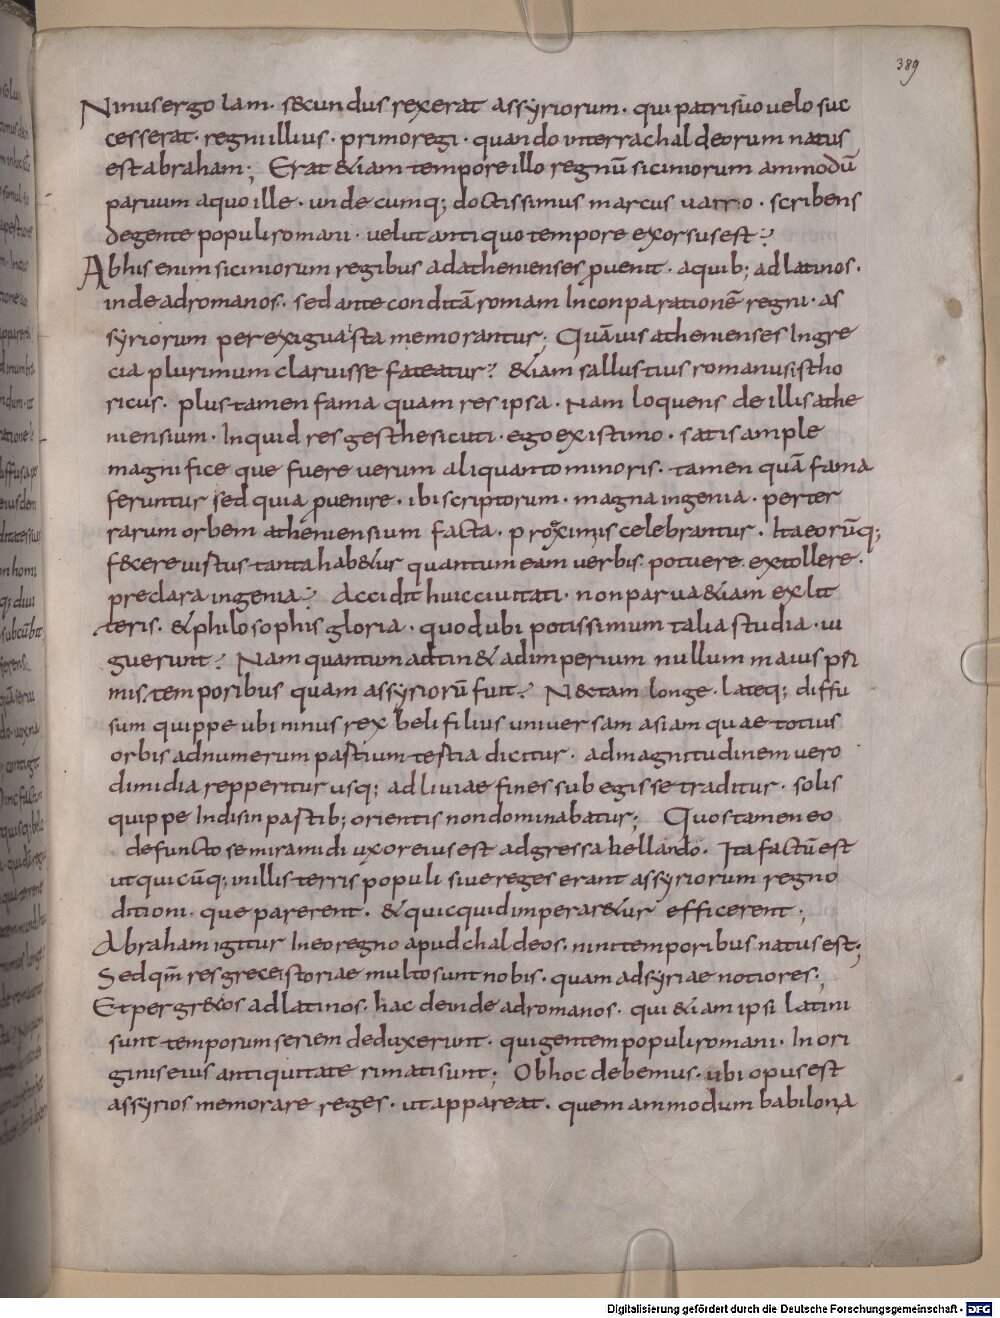 389
Ninus ergo Iam · secundus rexerat assyriorum · qui patri suo velo suc
cesserat · regni illius · primo regi · quando in terra chaldeorum natus
est abraham; Erat &iam tempore illo regnū siciniorum ammodū
paruum a quo ille · undecumq; doctissimus marcus uarro · scribens
de gente populi romani · velut antiquo tempore exorsus est?
Ab his enim siciniorum regibus ad athenienses puenit · a quib; ad latinos ·
inde ad romanos · sed ante conditā romam In conparationē regni · as
syriorum perexigua ista memorantur; Quāuis athenienses In gre
cia plurimum claruisse fateatur? &iam sallustius romanus istho
ricus · plus tamen fama quam res ipsa · Nam loquens de illis athe
niensium · Inquid res gesthe sicuti · ego existimo · satis ample
magnifice que fuere uerum aliquanto minoris · tamen quā fama
feruntur sed quia puenire · ibi scriptorum · magna ingenia · per ter
rarum orbem atheniensium facta · proximis celebrantur · Ita eorūq;
fecere uistus tanta hab&ur quantum eam uerbis potuere extollere ·
preclara ingenia? Accidit huic ciuitati · non parua &iam ex lit
teris · & philosophis gloria · quod ubi potissimum talia studia · ui
guerunt? Nam quantum adtin& ad imperium nullum maius pri
mis temporibus quam assyriorū fuit? Nec tam longe · lateq; diffu
sum quippe ubi ninus rex beli filius universam asiam quae totius
orbis ad numerum pastium testia dicitur · ad magnitudinem vero
dimidia repperitur usq; ad liuiae fines subegisse traditur · solis
quippe Indis in pastib; orientis non dominabatur; Quos tamen eo
defuncto semiramidi uxor eius est adgressa bellando · Ita factū est
ut quicūq; in illis terris populi siue reges erant assyriorum regno
ditioni · que parerent · & quicquid imperar&ur efficerent;
Abraham igitur In eo regno apud chaldeos · nini temporibus natus est;
Sed qm̄ res grece istoriae multo sunt nobis · quam adsyriae notiores;
Et per grecos ad latinos · hac deinde ad romanos · qui &iam ipsi latini
sunt temporum seriem deduxerunt · qui gentem populi romani · In ori
ginis eius antiquitate rimati sunt; Ob hoc debemus · ubi opus est
assyrios memorare reges · ut appareat · quem ammodum babilona
Digitalisierung gefördert durch die Deutsche Forschungsgemeinschaft - DFG